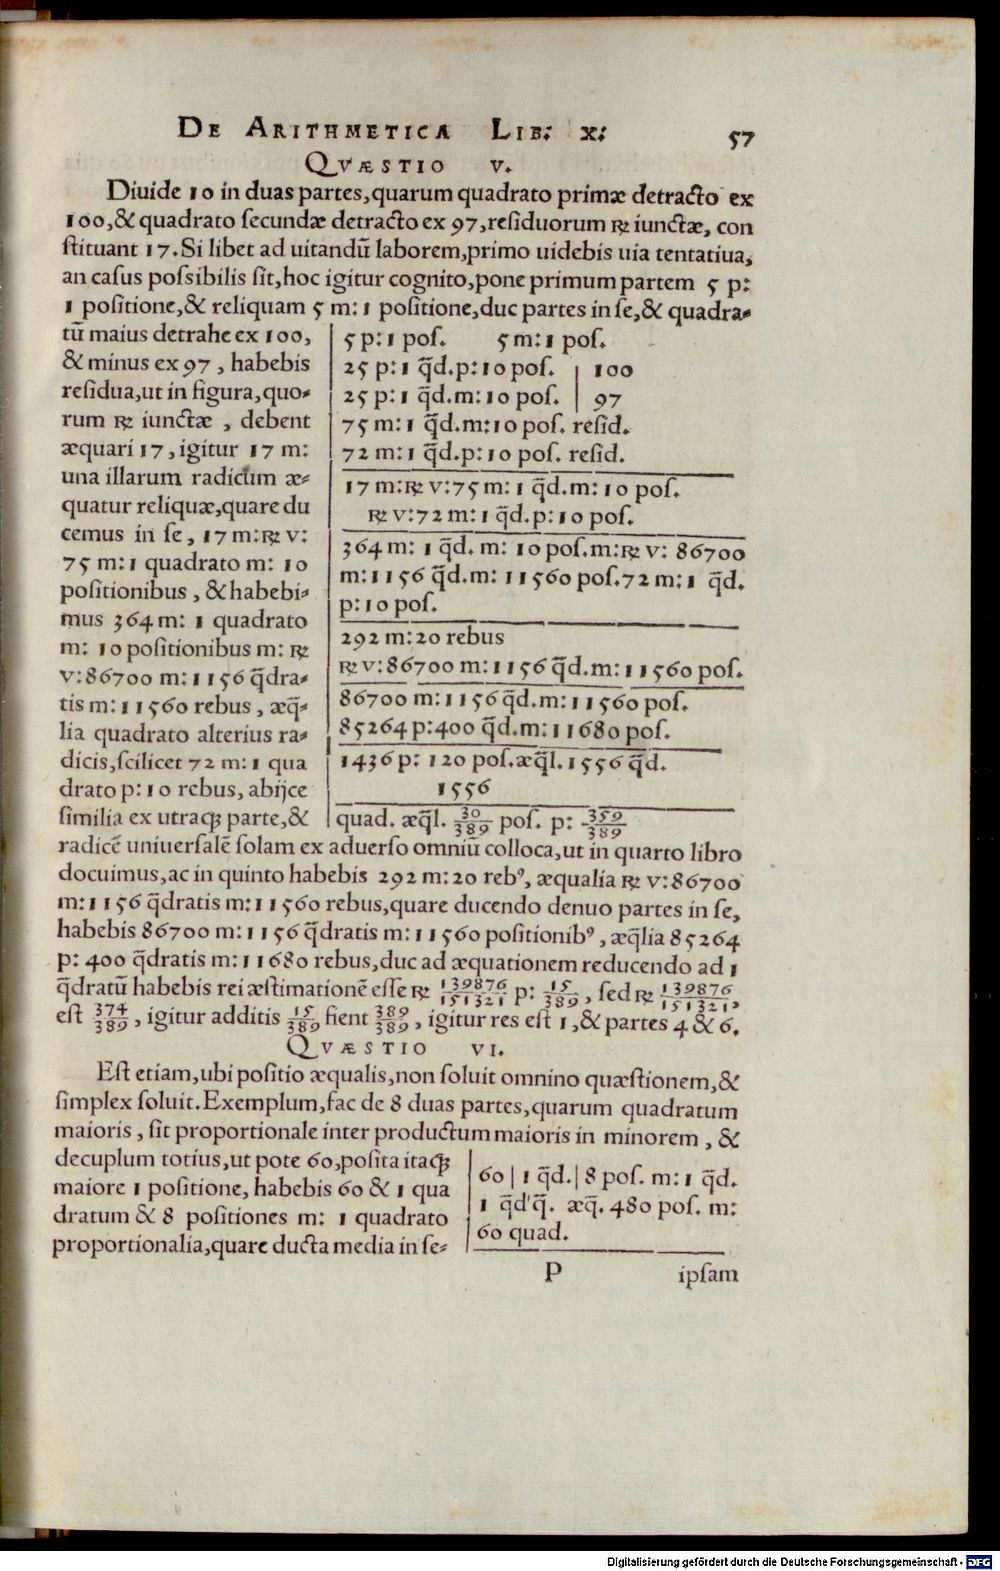 DE ARITHMETICA LIB: X: 57
QVÆSTIO V.
Diuide 10 in duas partes, quarum quadrato primæ detracto ex
100, & quadrato secundæ detracto ex 97, residuorum ℞ iunctæ, con
stituant 17. Si libet ad uitandū laborem, primo uidebis uia tentatiua,
an casus possibilis sit, hoc igitur cognito, pone primum partem 5 p:
1 positione, & reliquam 5 m: 1 positione, duc partes in se, & quadra-
tū maius detrahe ex 100,
& minus ex 97, habebis
residua, ut in figura, quo-
rum ℞ iunctæ, debent
æquari 17, igitur 17 m:
una illarum radicum æ-
quatur reliquæ, quare du
cemus in se, 17 m: ℞ v:
75 m: 1 quadrato m: 10
positionibus, & habebi-
mus 364 m: 1 quadrato
m: 10 positionibus m: ℞
v: 86700 m: 1156 q̄dra-
tis m: 11560 rebus, æq̄-
lia quadrato alterius ra-
dicis, scilicet 72 m: 1 qua
drato p: 10 rebus, abijce
similia ex utraqꝫ parte, &
5 p: 1 pos. 5 m: 1 pos.
25 p: 1 q̄d. p: 10 pos. | 100
25 p: 1 q̄d. m: 10 pos. | 97
75 m: 1 q̄d. m: 10 pos. resid.
72 m: 1 q̄d. p: 10 pos. resid.
17 m: ℞ v: 75 m: 1 q̄d. m: 10 pos.
℞ v: 72 m: 1 q̄d. p: 10 pos.
364 m: 1 q̄d. m: 10 pos. m: ℞ v: 86700
m: 1156 q̄d. m: 11560 pos. 72 m: 1 q̄d.
p: 10 pos.
292 m: 20 rebus
℞ v: 86700 m: 1156 q̄d. m: 11560 pos.
86700 m: 1156 q̄d. m: 11560 pos.
85264 p: 400 q̄d. m: 11680 pos.
1436 p: 120 pos. æq̄l. 1556 q̄d.
1556
quad. æq̄l. 30/389 pos. p: 359/389
radicē uniuersalē solam ex aduerso omniū colloca, ut in quarto libro
docuimus, ac in quinto habebis 292 m: 20 rebꝰ, æqualia ℞ v: 86700
m: 1156 q̄dratis m: 11560 rebus, quare ducendo denuo partes in se,
habebis 86700 m: 1156 q̄dratis m: 11560 positionibꝰ, æq̄lia 85264
p: 400 q̄dratis m: 11680 rebus, duc ad æquationem reducendo ad 1
q̄dratū habebis rei æstimationē esse ℞ 139876/151321 p: 15/389, sed ℞ 139876/151321,
est 374/389, igitur additis 15/389 fient 389/389, igitur res est 1, & partes 4 & 6.
QVÆSTIO VI.
Est etiam, ubi positio æqualis, non soluit omnino quæstionem, &
simplex soluit. Exemplum, fac de 8 duas partes, quarum quadratum
maioris, sit proportionale inter productum maioris in minorem, &
decuplum totius, ut pote 60, posita itaqꝫ
maiore 1 positione, habebis 60 & 1 qua
dratum & 8 positiones m: 1 quadrato
proportionalia, quare ducta media in se-
60 | 1 q̄d. | 8 pos. m: 1 q̄d.
1 q̄d'q̄. æq̄. 480 pos. m:
60 quad.
P ipsam
Digitalisierung gefördert durch die Deutsche Forschungsgemeinschaft - DFG